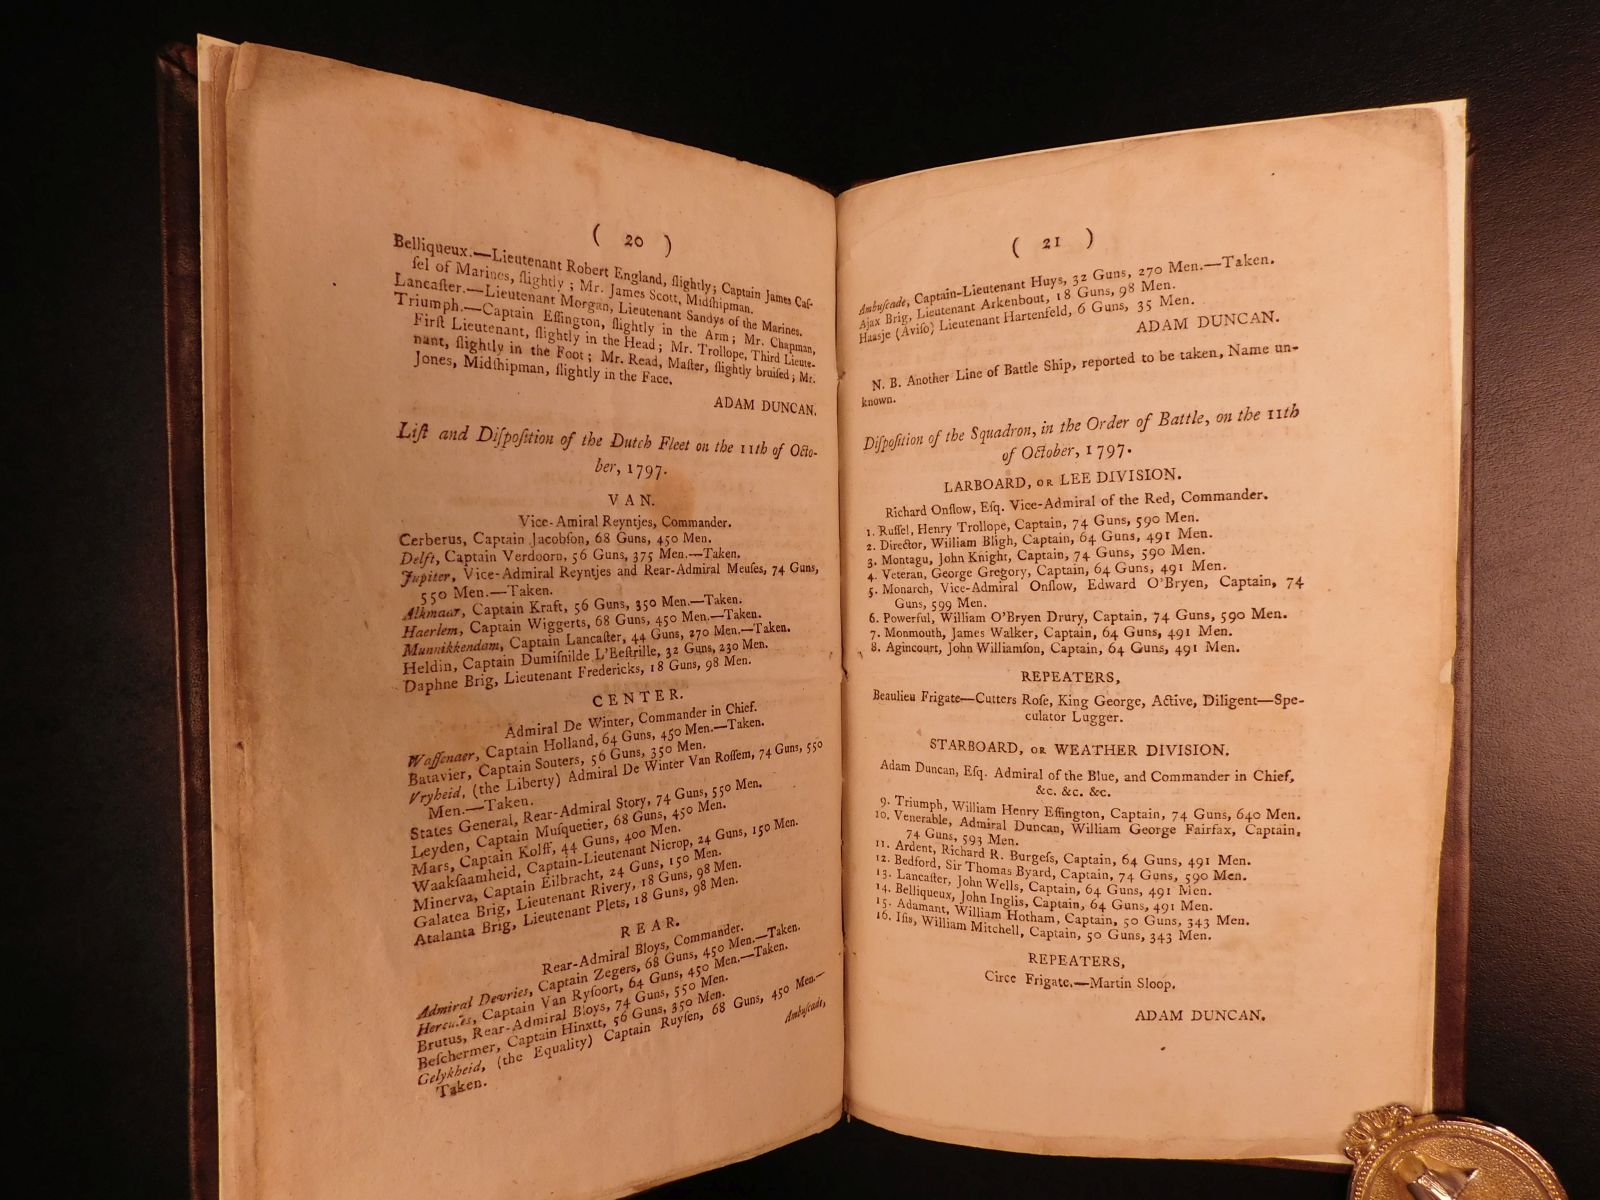 ( 20 )
Belliqueux.—Lieutenant Robert England, ſlightly; Captain James Caſ-
ſel of Marines, ſlightly; Mr. James Scott, Midſhipman.
Lancaſter.—Lieutenant Morgan, Lieutenant Sandys of the Marines.
Triumph.—Captain Eſſington, ſlightly in the Arm; Mr. Chapman,
Firſt Lieutenant, ſlightly in the Head; Mr. Trollope, Third Lieute-
nant, ſlightly in the Foot; Mr. Read, Maſter, ſlightly bruiſed; Mr.
Jones, Midſhipman, ſlightly in the Face.
ADAM DUNCAN.
Liſt and Diſpoſition of the Dutch Fleet on the 11th of Octo-
ber, 1797.
VAN.
Vice-Amiral Reyntjes, Commander.
Cerberus, Captain Jacobſon, 68 Guns, 450 Men.
Delft, Captain Verdoorn, 56 Guns, 375 Men.—Taken.
Jupiter, Vice-Admiral Reyntjes and Rear-Admiral Meuſes, 74 Guns,
550 Men.—Taken.
Alkmaar, Captain Kraft, 56 Guns, 350 Men.—Taken.
Haerlem, Captain Wiggerts, 68 Guns, 450 Men.—Taken.
Munnikkendam, Captain Lancaſter, 44 Guns, 270 Men.—Taken.
Heldin, Captain Dumiſnilde L'Eeſtrille, 32 Guns, 230 Men.
Daphne Brig, Lieutenant Fredericks, 18 Guns, 98 Men.
CENTER.
Admiral De Winter, Commander in Chief.
Waſſenaer, Captain Holland, 64 Guns, 450 Men.—Taken.
Batavier, Captain Souters, 56 Guns, 350 Men.
Vryheid, (the Liberty) Admiral De Winter Van Roſſem, 74 Guns, 550
Men.—Taken.
States General, Rear-Admiral Story, 74 Guns, 550 Men.
Leyden, Captain Muſquetier, 68 Guns, 450 Men.
Mars, Captain Kolff, 44 Guns, 400 Men.
Waakſaamheid, Captain-Lieutenant Nicrop, 24 Guns, 150 Men.
Minerva, Captain Eilbracht, 24 Guns, 150 Men.
Galatea Brig, Lieutenant Rivery, 18 Guns, 98 Men.
Atalanta Brig, Lieutenant Plets, 18 Guns, 98 Men.
REAR.
Rear-Admiral Bloys, Commander.
Admiral Devries, Captain Zegers, 68 Guns, 450 Men.—Taken.
Hercules, Captain Van Ryſoort, 64 Guns, 450 Men.—Taken.
Brutus, Rear-Admiral Bloys, 74 Guns, 550 Men.
Beſchermer, Captain Hinxtt, 56 Guns, 350 Men.
Gelykheid, (the Equality) Captain Ruyſen, 68 Guns, 450 Men.—
Taken.
Ambuſcade,
( 21 )
Ambuſcade, Captain-Lieutenant Huys, 32 Guns, 270 Men.—Taken.
Ajax Brig, Lieutenant Arkenbout, 18 Guns, 98 Men.
Haasje (Aviſo) Lieutenant Hartenfeld, 6 Guns, 35 Men.
ADAM DUNCAN.
N. B. Another Line of Battle Ship, reported to be taken, Name un-
known.
Diſpoſition of the Squadron, in the Order of Battle, on the 11th
of October, 1797.
LARBOARD, OR LEE DIVISION.
Richard Onſlow, Eſq. Vice-Admiral of the Red, Commander.
1. Ruſſel, Henry Trollope, Captain, 74 Guns, 590 Men.
2. Director, William Bligh, Captain, 64 Guns, 491 Men.
3. Montagu, John Knight, Captain, 74 Guns, 590 Men.
4. Veteran, George Gregory, Captain, 64 Guns, 491 Men.
5. Monarch, Vice-Admiral Onſlow, Edward O'Bryen, Captain, 74
Guns, 599 Men.
6. Powerful, William O'Bryen Drury, Captain, 74 Guns, 590 Men.
7. Monmouth, James Walker, Captain, 64 Guns, 491 Men.
8. Agincourt, John Williamſon, Captain, 64 Guns, 491 Men.
REPEATERS,
Beaulieu Frigate—Cutters Roſe, King George, Active, Diligent—Spe-
culator Lugger.
STARBOARD, OR WEATHER DIVISION.
Adam Duncan, Eſq. Admiral of the Blue, and Commander in Chief,
&c. &c. &c.
9. Triumph, William Henry Eſſington, Captain, 74 Guns, 640 Men.
10. Venerable, Admiral Duncan, William George Fairfax, Captain,
74 Guns, 593 Men.
11. Ardent, Richard R. Burgeſs, Captain, 64 Guns, 491 Men.
12. Bedford, Sir Thomas Byard, Captain, 74 Guns, 590 Men.
13. Lancaſter, John Wells, Captain, 64 Guns, 491 Men.
14. Belliqueux, John Inglis, Captain, 64 Guns, 491 Men.
15. Adamant, William Hotham, Captain, 50 Guns, 343 Men.
16. Iſis, William Mitchell, Captain, 50 Guns, 343 Men.
REPEATERS,
Circe Frigate.—Martin Sloop.
ADAM DUNCAN.